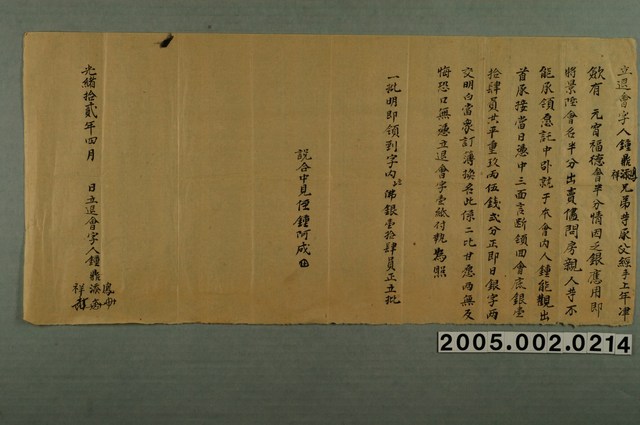 立退會字人鍾鼎添鳳祥兄弟等承父經手上年津
斂有 元宵福德會半分情因乏銀應用即
將景陞會名半分出賣儘問房親人等不
能承領愿託中引就于本會内人鍾能觀出
首承接當日憑中三面言斷領回會底銀壹
拾肆員共平重玖兩伍錢弍分正即日銀字兩
交明白當衆訂簿換名此係二比甘愿两無反
悔恐口無憑立退會字壹紙付執為照
一批明即領到字内佛銀壹拾肆員正立批
說合中見侄鍾阿成
光緒拾貳年四月 日立退會字人鍾鼎添鳳祥
2005.002.0214